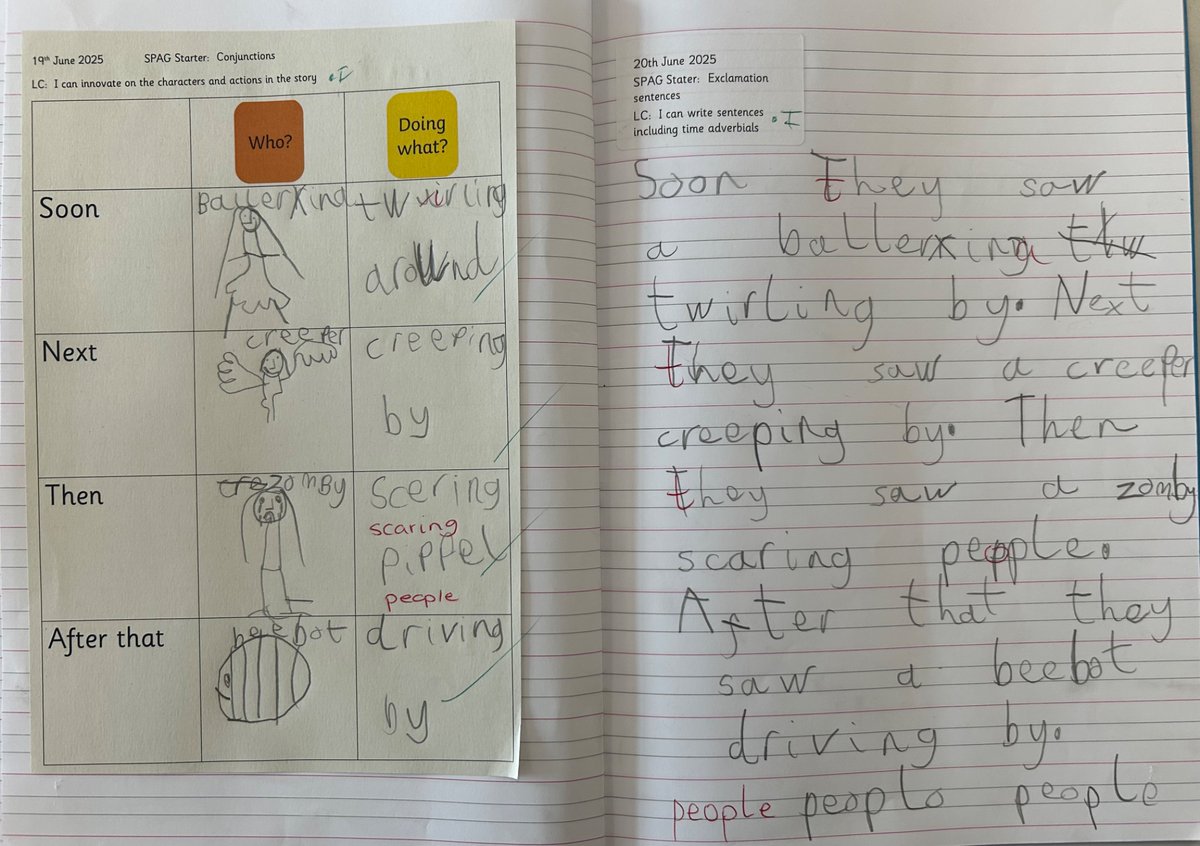 19th June 2025 SPAG Starter: Conjunctions
LC: I can innovate on the characters and actions in the story .I
Who? Doing what?
Soon BallerXind twirling
around
Next creefer creeping
by
Then zomBy scering
scaring
pippel
people
After that beebot driving
by
20th June 2025
SPAG Stater: Exclamation
sentences
LC: I can write sentences
including time adverbials .I
Soon they saw
a ballerxina
twirling by. Next
they saw a creefer
creeping by. Then
they saw a zomby
scaring people.
After that they
saw a beebot
driving by.
people people people